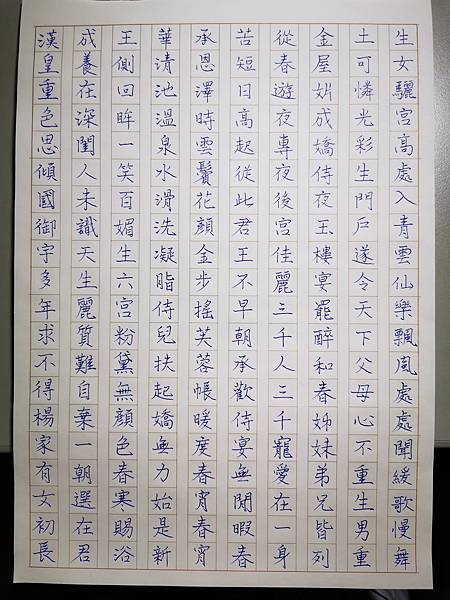 漢皇重色思傾國御宇多年求不得楊家有女初長
成養在深閨人未識天生麗質難自棄一朝選在君
王側回眸一笑百媚生六宮粉黛無顏色春寒賜浴
華清池溫泉水滑洗凝脂侍兒扶起嬌無力始是新
承恩澤時雲鬢花顏金步搖芙蓉帳暖度春宵春宵
苦短日高起從此君王不早朝承歡侍宴無閒暇春
從春遊夜專夜後宮佳麗三千人三千寵愛在一身
金屋妝成嬌侍夜玉樓宴罷醉和春姊妹弟兄皆列
土可憐光彩生門戶遂令天下父母心不重生男重
生女驪宮高處入青雲仙樂飄風處處聞緩歌慢舞